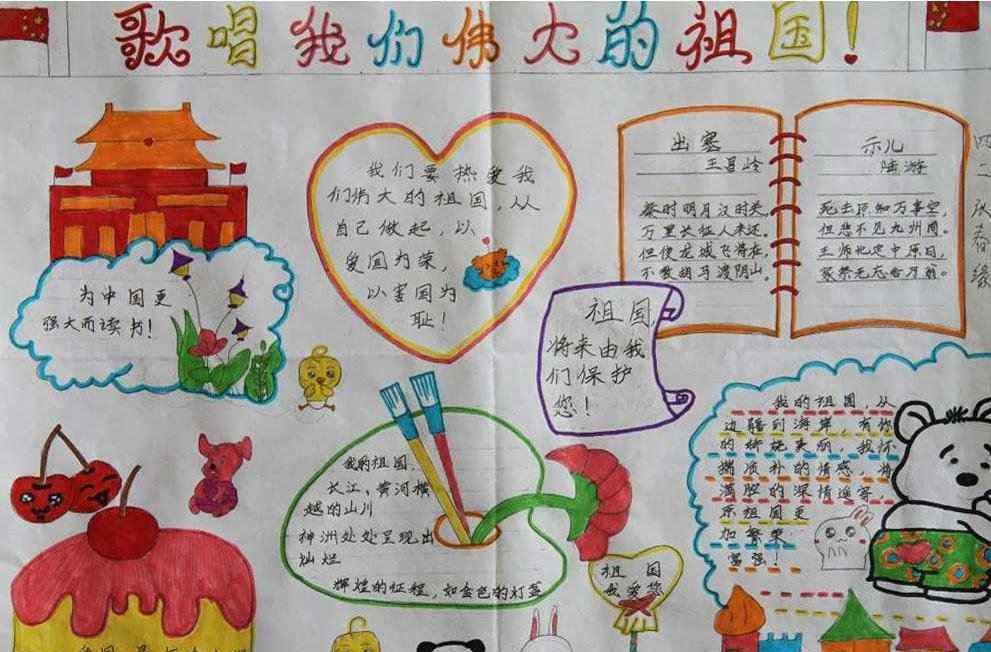 歌唱我们伟大的祖国!
我们要热爱我
们伟大的祖国,从
自己做起,以
爱国为荣,
以害国为
耻!
出塞
王昌龄
秦时明月汉时关,
万里长征人未还。
但使龙城飞将在,
不教胡马渡阴山。
示儿
陆游
死去原知万事空,
但悲不见九州同。
王师北定中原日,
家祭无忘告乃翁。
四二
张春缘
为中国更
强大而读书!
祖国,
将来由我
们保护
您!
我的祖国,
长江、黄河横
越的山川
神洲处处呈现出
灿烂
辉煌的征程,如金色的灯盏
我的祖国,从
边疆到海岸,有你
的娇娆美丽,我怀
揣质朴的情感,将
满腔的深情遥寄
祖国更
加繁荣
富强!
祖国
我爱您